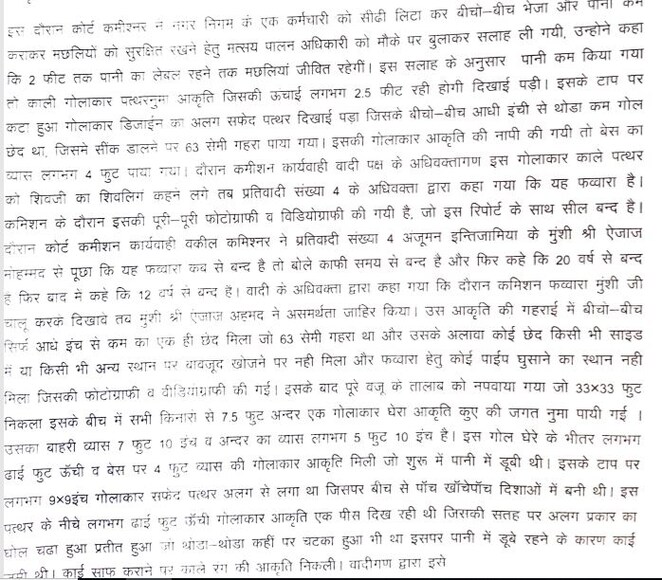 इस दौरान कोर्ट कमीश्नर ने नगर निगम के एक कर्मचारी को सीढी लिटा कर बीचो–बीच भेजा और पानी कम
कराकर मछलियों को सुरक्षित रखने हेतु मत्सय पालन अधिकारी को मौके पर बुलाकर सलाह ली गयी, उन्होने कहा
कि 2 फीट तक पानी का लेबल रहने तक मछलियां जीवित रहेगी। इस सलाह के अनुसार पानी कम किया गया
तो काली गोलाकार पत्थरनुमा आकृति जिसकी ऊचाई लगभग 2.5 फीट रही होगी दिखाई पड़ी। इसके टाप पर
कटा हुआ गोलाकार डिजाईन का अलग सफेद पत्थर दिखाई पड़ा जिसके बीचो–बीच आधी इंची से थोडा कम गोल
छेद था, जिसमे सींक डालने पर 63 सेमी गहरा पाया गया। इसकी गोलाकार आकृति की नापी की गयी तो बेस का
व्यास लगभग 4 फुट पाया गया। दौरान कमीशन कार्यवाही वादी पक्ष के अधिवक्तागण इस गोलाकार काले पत्थर
को शिवजी का शिवलिंग कहने लगे तब प्रतिवादी संख्या 4 के अधिवक्ता द्वारा कहा गया कि यह फव्वारा है।
कमिशन के दौरान इसकी पूरी–पूरी फोटोग्राफी व विडियोग्राफी की गयी है, जो इस रिपोर्ट के साथ सील बन्द है।
दौरान कोर्ट कमीशन कार्यवाही वकील कमिश्नर ने प्रतिवादी संख्या 4 अंजूमन इन्तिजामिया के मुंशी श्री ऐजाज
मोहम्मद से पूछा कि यह फव्वारा कब से बन्द है तो बोले काफी समय से बन्द है और फिर कहे कि 20 वर्ष से बन्द
है फिर बाद मे कहे कि 12 वर्ष से बन्द है। वादी के अधिवक्ता द्वारा कहा गया कि दौरान कमिशन फव्वारा मुंशी जी
चालू करके दिखावे तब मुंशी श्री ऐजाज अहमद ने असमर्थता जाहिर किया। उस आकृति की गहराई में बीचो–बीच
सिर्फ आधे इंच से कम का एक ही छेद मिला जो 63 सेमी गहरा था और उसके अलावा कोई छेद किसी भी साइड
में या किसी भी अन्य स्थान पर बावजूद खोजने पर नही मिला और फव्वारा हेतु कोई पाईप घुसाने का स्थान नही
मिला जिसकी फोटोग्राफी व वीडियोग्राफी की गई। इसके बाद पूरे वजू के तालाब को नपवाया गया जो 33×33 फुट
निकला इसके बीच में सभी किनारों से 7.5 फुट अन्दर एक गोलाकार घेरा आकृति कुए की जगत नुमा पायी गई ।
उसका बाहरी व्यास 7 फुट 10 इंच व अन्दर का व्यास लगभग 5 फुट 10 इंच है। इस गोल घेरे के भीतर लगभग
ढाई फुट ऊँची व बेस पर 4 फुट व्यास की गोलाकार आकृति मिली जो शुरू में पानी में डूबी थी। इसके टाप पर
लगभग 9×9इंच गोलाकार सफेद पत्थर अलग से लगा था जिसपर बीच से पॉच खॉचेपॉच दिशाओं में बनी थी। इस
पत्थर के नीचे लगभग ढाई फुट ऊँची गोलाकार आकृति एक पीस दिख रही थी जिसकी सतह पर अलग प्रकार का
घोल चढा हुआ प्रतीत हुआ जो थोडा–थोडा कहीं पर चटका हुआ भी था इसपर पानी में डूबे रहने के कारण काई
थी। काई साफ कराने पर काले रंग की आकृति निकली। वादीगण द्वारा इसे